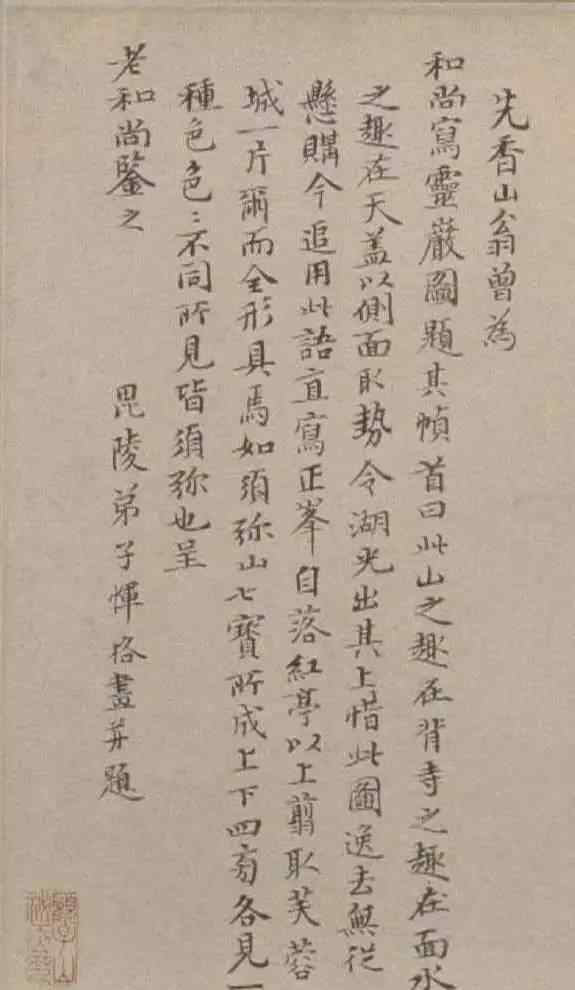 先香山翁曾為
和尚寫靈巖圖題其幀首曰此山之趣在背寺之趣在面水
之趣在天蓋以側面取勢令湖光出其上惜此圖逸去無從
懸購今追用此語直寫正峯自落紅亭以上翦取芙蓉
城一片爾而全形具焉如須弥山七寶所成上下四旁各見一
種色色〻不同所見皆須弥也呈
老和尚鑒之 毘陵弟子惲格畫并題